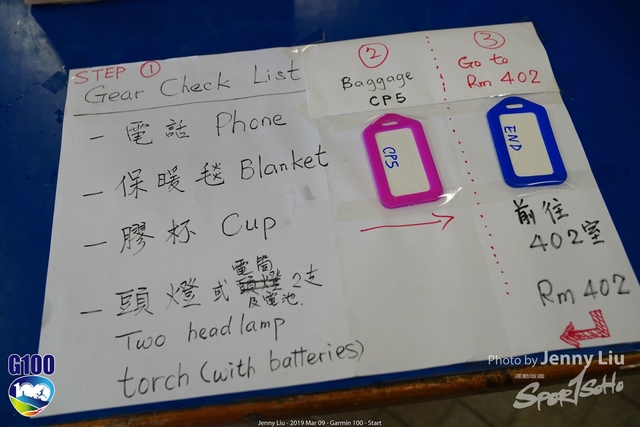 STEP ①
Gear Check List
- 電話 Phone
- 保暖毯 Blanket
- 膠杯 Cup
- 頭燈或電筒2支
及電池
Two headlamp
torch (with batteries)
②
Baggage
CP5
CP5
③
Go to
Rm 402
END
前往
402室
Rm 402
G100
Photo by Jenny Liu
運動版圖
SportSoHo
Jenny Liu - 2019 Mar 09 - Garmin 100 - Start